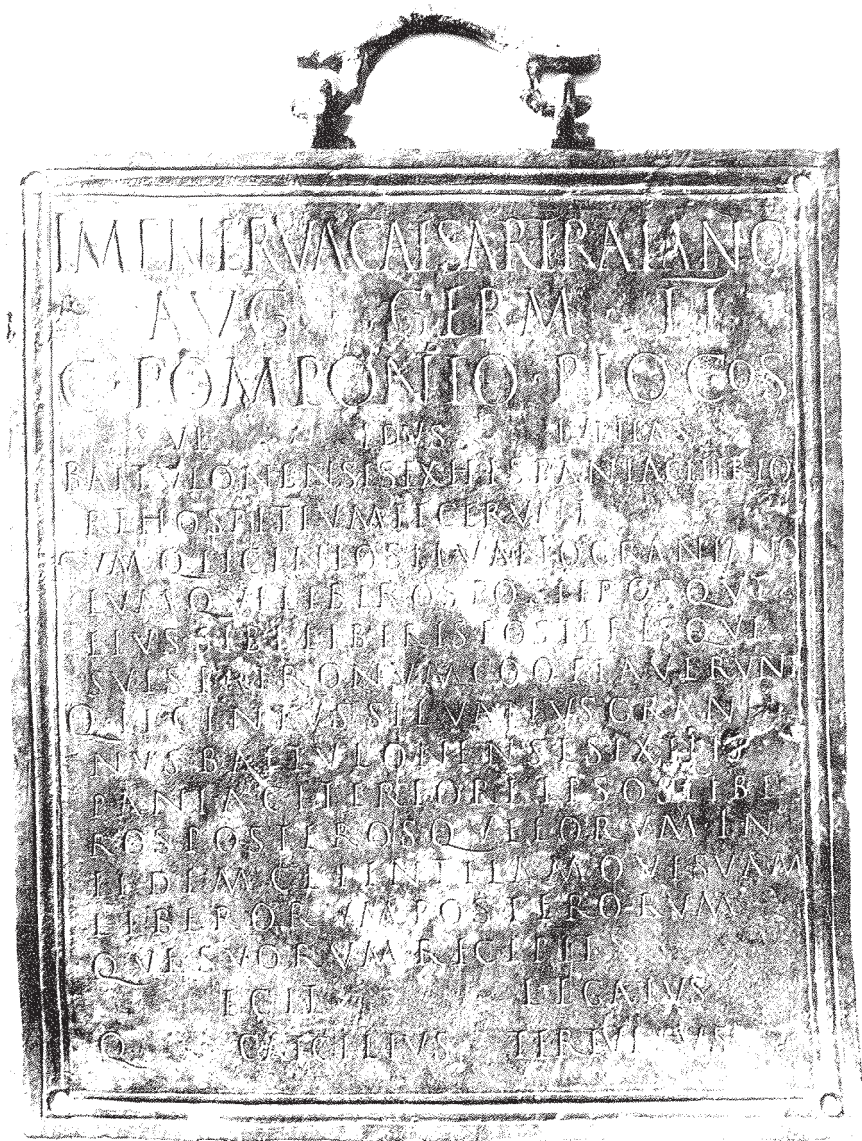 IMP NERVA CAESARE TRAIANO
AVG GERM II
C · POMPONIO · PIO COS
IDVS IVNIAS
BAETVLONENSES EX HISPANIA CITERIO
RE HOSPITIVM FECERVNT
CVM Q LICINIO SILVANO GRANIANO
EVMQVE LIBEROS POSTEROSQVE
EIVS SIBI LIBERIS POSTERISQVE
SVIS PATRONVM COOPTAVERVNT
Q LICINIVS SILVANVS GRANIA
NVS BAETVLONENSES EX HIS
PANIA CITERIORE IPSOS LIBE
ROS POSTEROSQVE EORVM IN
FIDEM CLIENTELAMQVE SVAM
LIBERORVM POSTERORVM
QVE SVORVM RECEPIT
EGIT LEGATVS
Q CAECILIVS TERTVLLVS